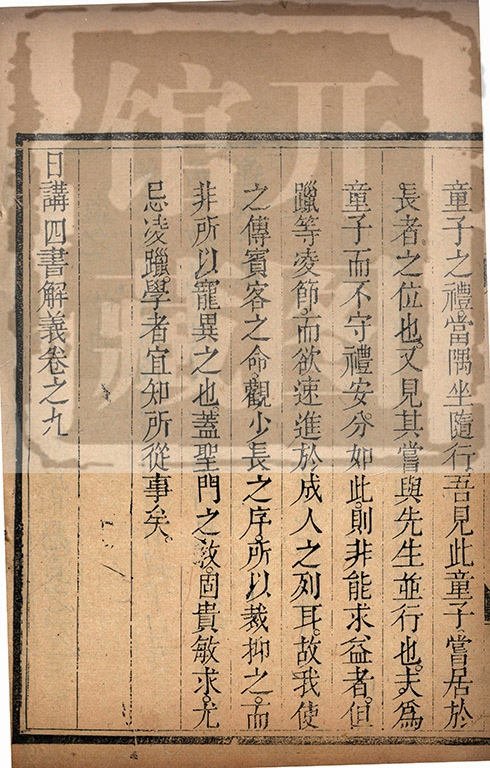 童子之禮當隅坐隨行吾見此童子嘗居於
長者之位也又見其嘗與先生並行也夫為
童子而不守禮安分如此則非能求益者但
躐等凌節而欲速進於成人之列耳故我使
之傳賓客之命觀少長之序所以裁抑之而
非所以寵異之也蓋聖門之教固貴敏求尤
忌凌躐學者宜知所從事矣
日講四書解義卷之九